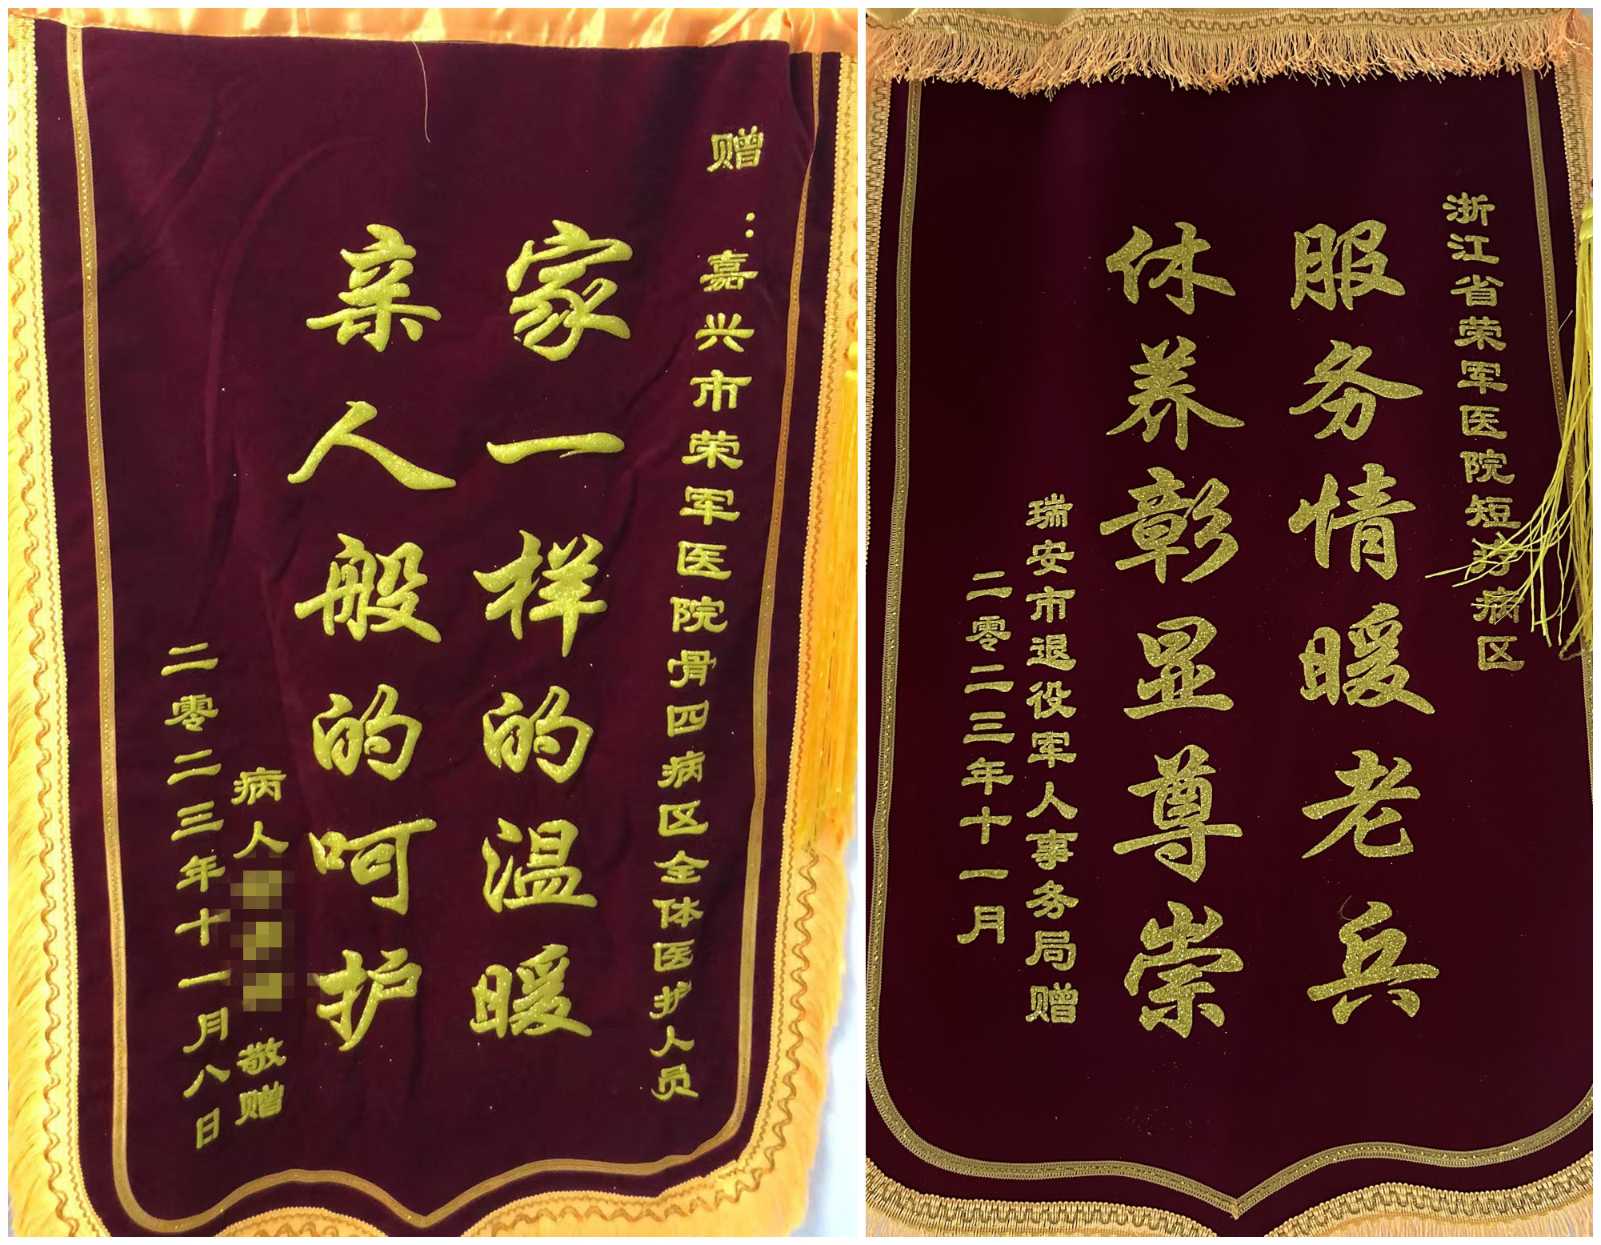 赠：嘉兴市荣军医院骨四病区全体医护人员
家一样的温暖
亲人般的呵护
病人 敬赠
二零二三年十一月八日
浙江省荣军医院短疗病区
服务情暖老兵
休养彰显尊崇
瑞安市退役军人事务局赠
二零二三年十一月